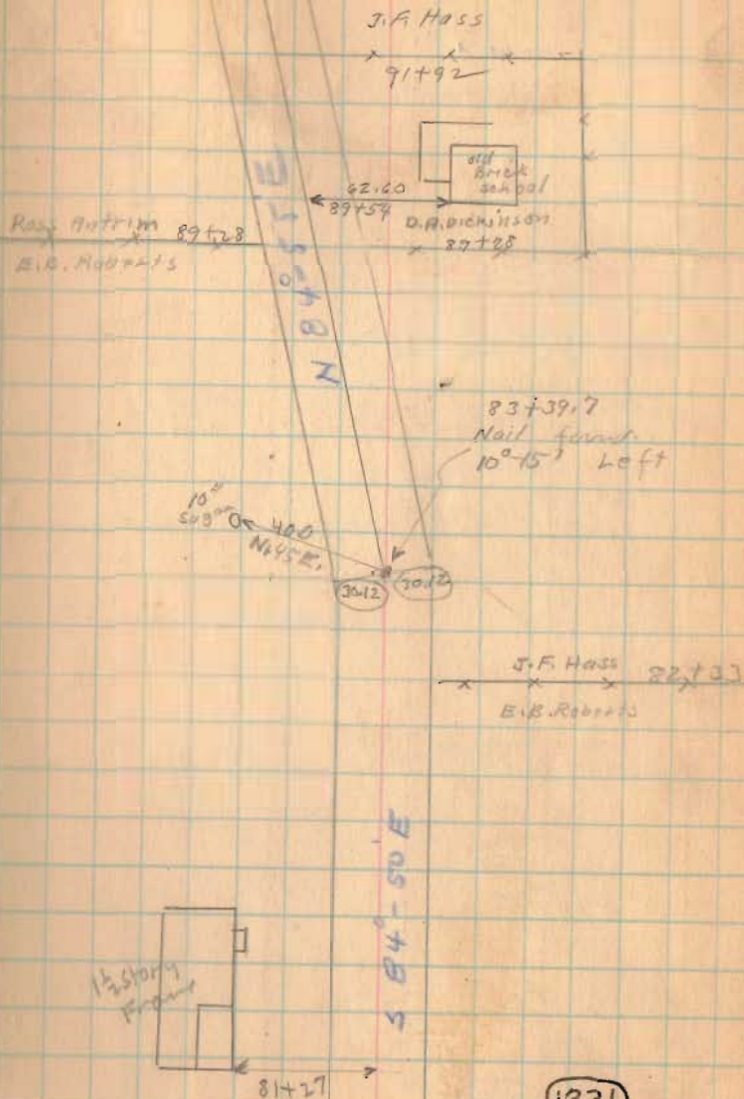 J.F. Hass
91+92
old
Brick
school
62.60
89+54
D.A. Dickinson
89+28
Ross Antrim 89+28
E.B. Roberts
N 84°-55' E
83+39.7
Nail found
10°-15' Left
10"
Sugar
40.0
N.45E.
30.12
30.12
J.F. Hass 82+33
E.B. Roberts
S 84°-50' E
1½ Story
Frame
81+27